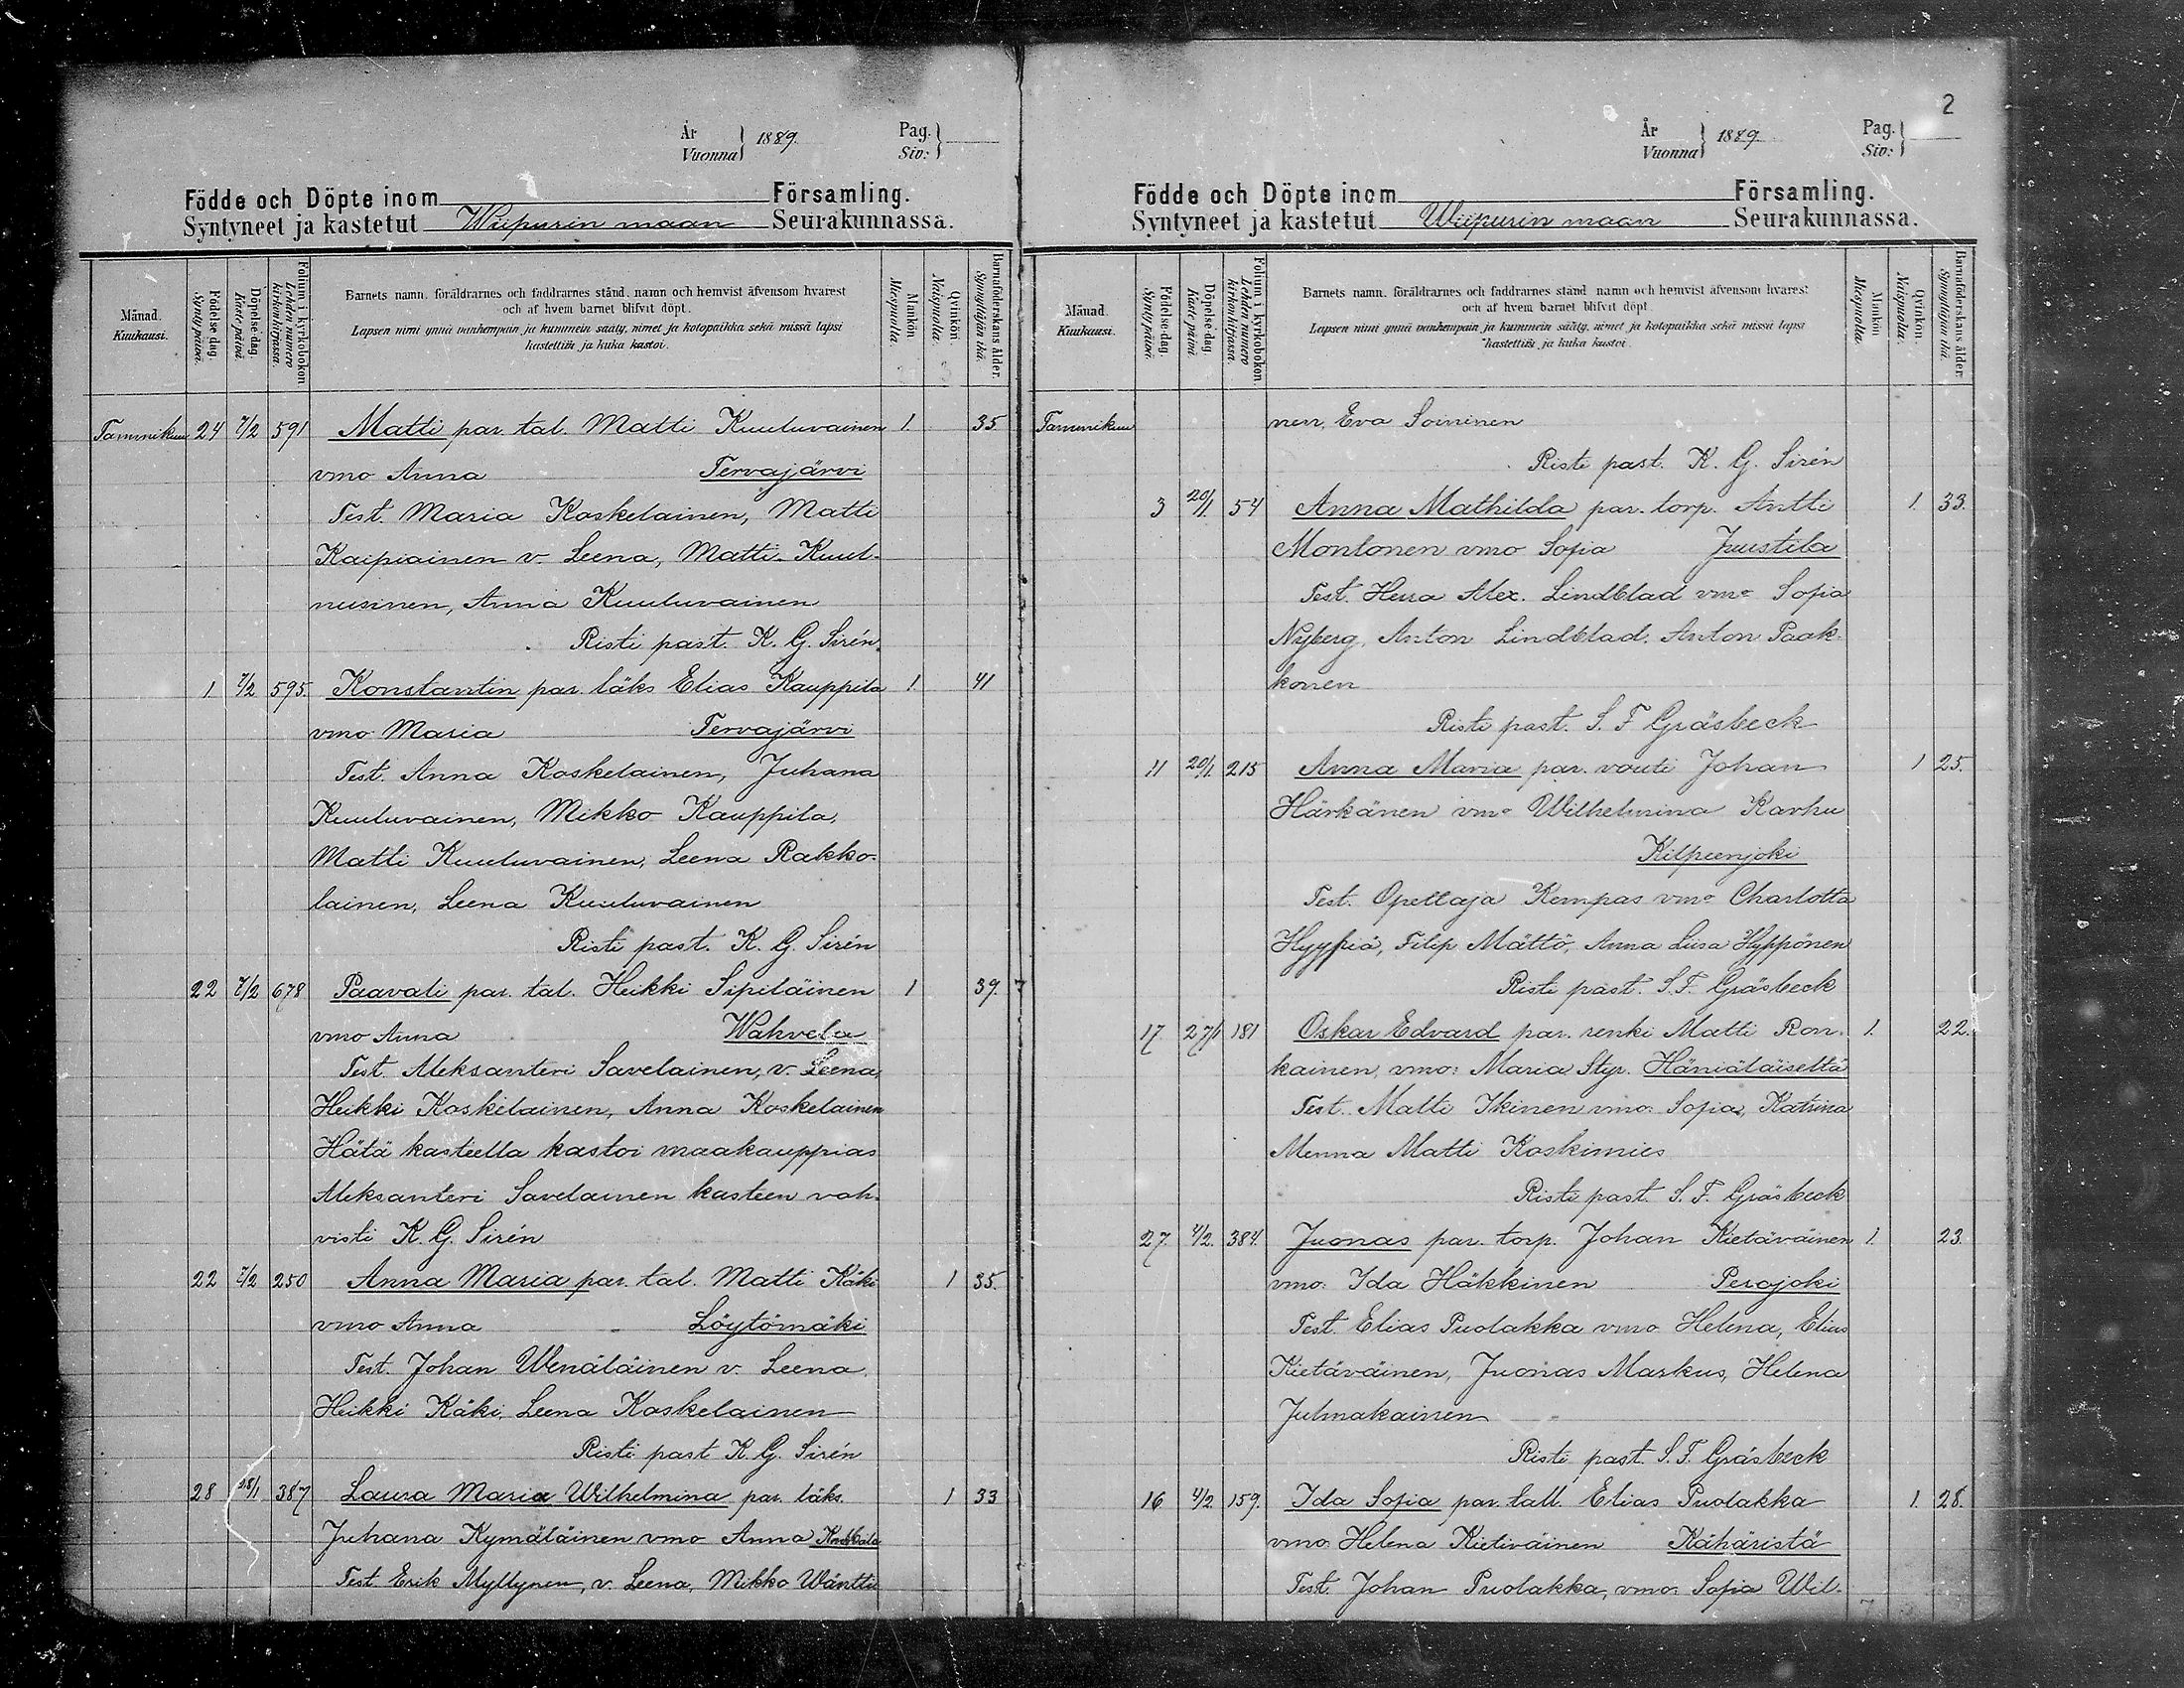 År
Vuonna } 1889.
Pag.
Siv: }
Födde och Döpte inom Församling.
Syntyneet ja kastetut Wiipurin maan Seurakunnassa.
Månad.
Kuukausi.
Födelse-dag.
Synty-päivä.
Döpelse-dag.
Kaste-päivä.
Folium i kyrkoboken
Lehden numero
kirkonkirjassa.
Barnets namn, föräldrarnes och faddrarnes stånd, namn och hemvist äfvensom hvarest
och af hvem barnet blifvit döpt.
Lapsen nimi ynnä vanhempain ja kummein sääty, nimet ja kotopaikka sekä missä lapsi
kastettiin ja kuka kastoi.
Mankön
Miespuolia.
Qvinkön
Naispuolia.
Barnaföderskans ålder.
Synnyttäjän ikä.
Tammikuu 24 7/2 591 Matti par. tal. Matti Kuuluvainen 1. 35.
vmo Anna Tervajärvi
Test. Maria Koskelainen, Matti
Kaipiainen v. Leena, Matti Kuul-
nusinen, Anna Kuuluvainen
Risti past. K. G. Sirén.
1 7/2 595. Konstantin par. läks Elias Kauppila 1. 41
vmo Maria Tervajärvi
Test. Anna Koskelainen, Juhana
Kuuluvainen, Mikko Kauppila,
Matti Kuuluvainen, Leena Rakko-
lainen, Leena Kuuluvainen
Risti past. K. G. Sirén
22 7/2 678 Paavali par. tal. Heikki Sipiläinen 1 39.
vmo Anna Wahvela
Test. Aleksanteri Savelainen, v. Leena,
Heikki Koskelainen, Anna Koskelainen
Hätä kasteella kastoi maakauppias
Aleksanteri Savelainen kasteen vah-
visti K. G. Sirén
22 7/2 250 Anna Maria par. tal. Matti Käki 1 35.
vmo Anna Löytömäki
Test. Johan Wenäläinen v. Leena,
Heikki Käki, Leena Koskelainen
Risti past K. G. Sirén
28 28/1 387 Laura Maria Wilhelmina par. läks. 1 33
Juhana Kymäläinen vmo Anna
Test Erik Myllynen, v. Leena, Mikko Wäntti
2
År
Vuonna } 1889.
Pag.
Siv: }
Födde och Döpte inom Församling.
Syntyneet ja kastetut Wiipurin maan Seurakunnassa.
Månad.
Kuukausi.
Födelse-dag.
Synty-päivä.
Döpelse-dag.
Kaste-päivä
Folium i kyrkoboken
Lehden numero
kirkonkirjassa.
Barnets namn, föräldrarnes och faddrarnes stånd, namn och hemvist äfvensom hvarest
och af hvem barnet blifvit döpt.
Lapsen nimi ynnä vanhempain ja kummein sääty, nimet ja kotopaikka sekä missä lapsi
kastettiin ja kuka kastoi.
Mankön
Miespuolia.
Qvinkön
Naispuolia.
Barnaföderskans ålder.
Synnyttäjän ikä.
Tammikuu nen, Eva Soininen
Risti past. K. G. Sirén
3 20/1. 54 Anna Mathilda par. torp. Antti 1. 33.
Montonen vmo Sofia Juustila
Test. Herra Alex. Lindblad vmo Sofia
Nyberg, Anton Lindblad. Anton Paak-
konen
Risti past. S. F Gräsbeck
11 20/1. 215 Anna Maria par. vouti Johan 1 25.
Härkänen vmo Wilhelmina Karhu
Kilpeenjoki
Test. Opettaja Kempas vmo Charlotta
Hyypiä, Filip Mättö, Anna Liisa Hyppönen
Risti past. S. F. Gräsbeck
17. 27/1 181 Oskar Edvard par. renki Matti Ron- 1. 22.
kainen, vmo: Maria Styr. Häniäläiseltä
Test. Matti Ikinen vmo. Sofia, Katrina
Menna Matti Koskimies
Risti past. S. F. Gräsbeck
27. 4/2. 384. Juonas par. torp. Johan Kietäväinen 1. 23.
vmo. Ida Häkkinen Perojoki
Test. Elias Puolakka vmo Helena, Elias
Kietäväinen, Juonas Markus, Helena
Julmakainen
Risti past. S. F. Gräsbeck
16 4/2 159. Ida Sofia par. tall. Elias Puolakka 1. 28.
vmo. Helena Kietiväinen Kähäristä
Test. Johan Puolakka, vmo. Sofia Wil-